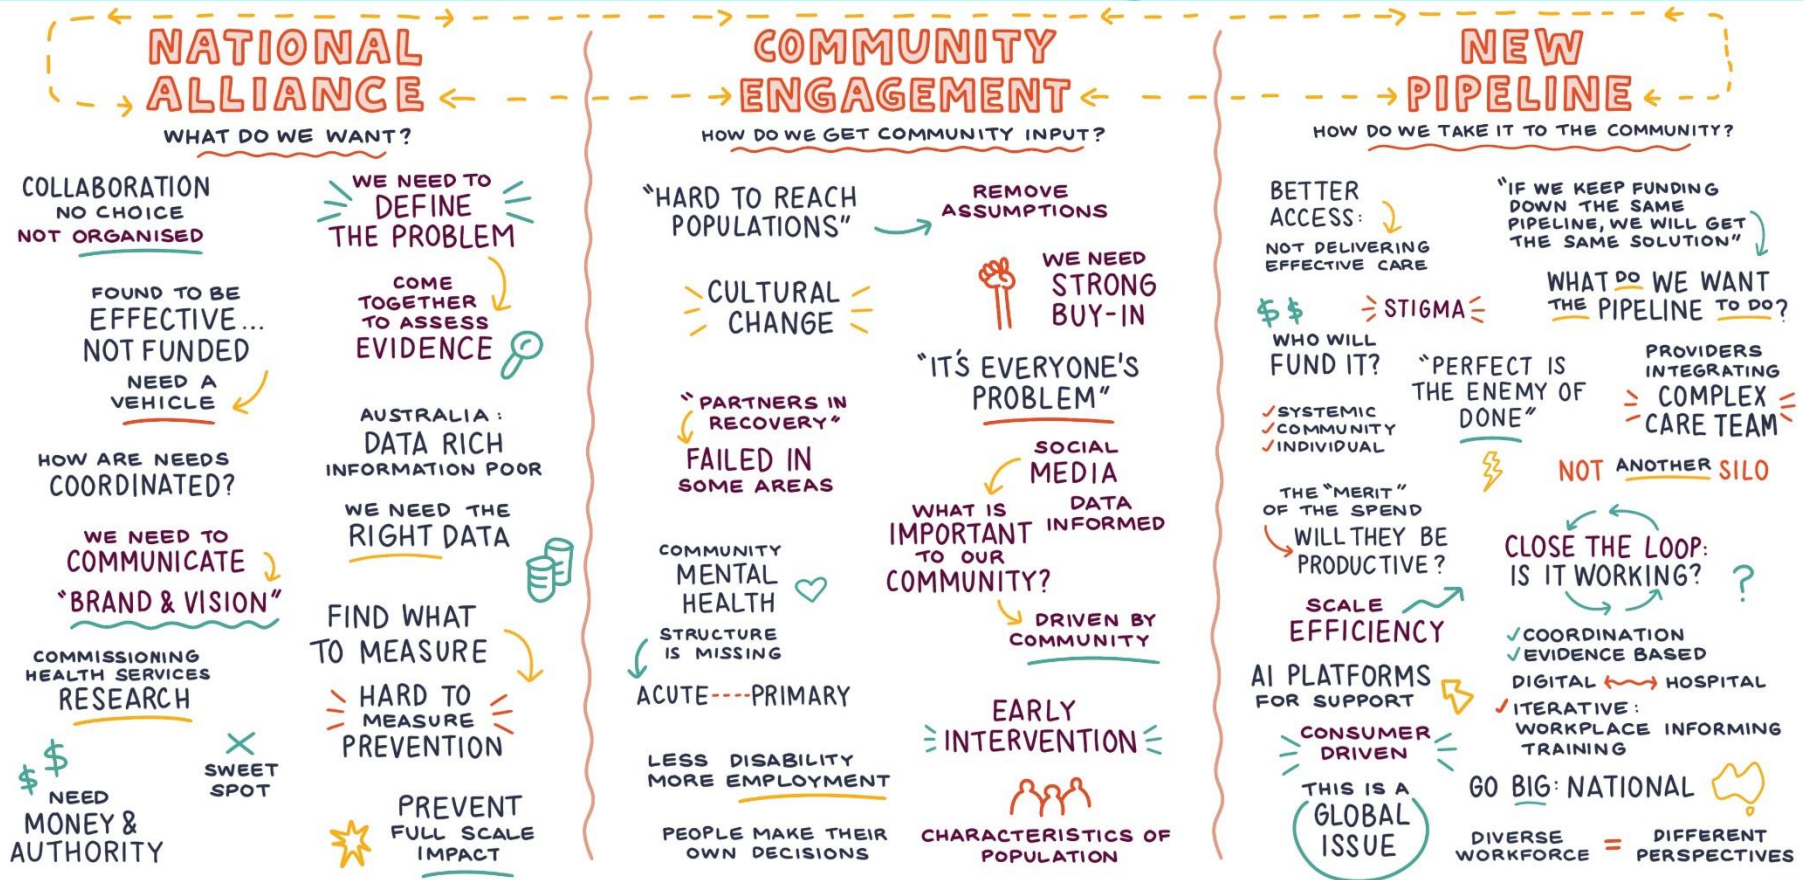 NATIONAL
ALLIANCE
WHAT DO WE WANT?
COLLABORATION
NO CHOICE
NOT ORGANISED
FOUND TO BE
EFFECTIVE...
NOT FUNDED
NEED A
VEHICLE
HOW ARE NEEDS
COORDINATED?
WE NEED TO
COMMUNICATE
"BRAND & VISION"
COMMISSIONING
HEALTH SERVICES
RESEARCH
$ $
NEED
MONEY &
AUTHORITY
SWEET
SPOT
WE NEED TO
DEFINE
THE PROBLEM
COME
TOGETHER
TO ASSESS
EVIDENCE
AUSTRALIA:
DATA RICH
INFORMATION POOR
WE NEED THE
RIGHT DATA
FIND WHAT
TO MEASURE
HARD TO
MEASURE
PREVENTION
PREVENT
FULL SCALE
IMPACT
COMMUNITY
ENGAGEMENT
HOW DO WE GET COMMUNITY INPUT?
"HARD TO REACH
POPULATIONS"
CULTURAL
CHANGE
"PARTNERS IN
RECOVERY"
FAILED IN
SOME AREAS
COMMUNITY
MENTAL
HEALTH
STRUCTURE
IS MISSING
ACUTE----PRIMARY
LESS DISABILITY
MORE EMPLOYMENT
PEOPLE MAKE THEIR
OWN DECISIONS
REMOVE
ASSUMPTIONS
WE NEED
STRONG
BUY-IN
"IT'S EVERYONE'S
PROBLEM"
SOCIAL
MEDIA
DATA
INFORMED
WHAT IS
IMPORTANT
TO OUR
COMMUNITY?
DRIVEN BY
COMMUNITY
EARLY
INTERVENTION
CHARACTERISTICS OF
POPULATION
NEW
PIPELINE
HOW DO WE TAKE IT TO THE COMMUNITY?
BETTER
ACCESS:
NOT DELIVERING
EFFECTIVE CARE
$ $
WHO WILL
FUND IT?
STIGMA
SYSTEMIC
COMMUNITY
INDIVIDUAL
THE "MERIT"
OF THE SPEND
WILL THEY BE
PRODUCTIVE?
SCALE
EFFICIENCY
AI PLATFORMS
FOR SUPPORT
CONSUMER
DRIVEN
THIS IS A
GLOBAL
ISSUE
"IF WE KEEP FUNDING
DOWN THE SAME
PIPELINE, WE WILL GET
THE SAME SOLUTION"
WHAT DO WE WANT
THE PIPELINE TO DO?
"PERFECT IS
THE ENEMY OF
DONE"
PROVIDERS
INTEGRATING
COMPLEX
CARE TEAM
NOT ANOTHER SILO
CLOSE THE LOOP:
IS IT WORKING?
?
COORDINATION
EVIDENCE BASED
DIGITAL HOSPITAL
ITERATIVE:
WORKPLACE INFORMING
TRAINING
GO BIG: NATIONAL
DIVERSE
WORKFORCE = DIFFERENT
PERSPECTIVES